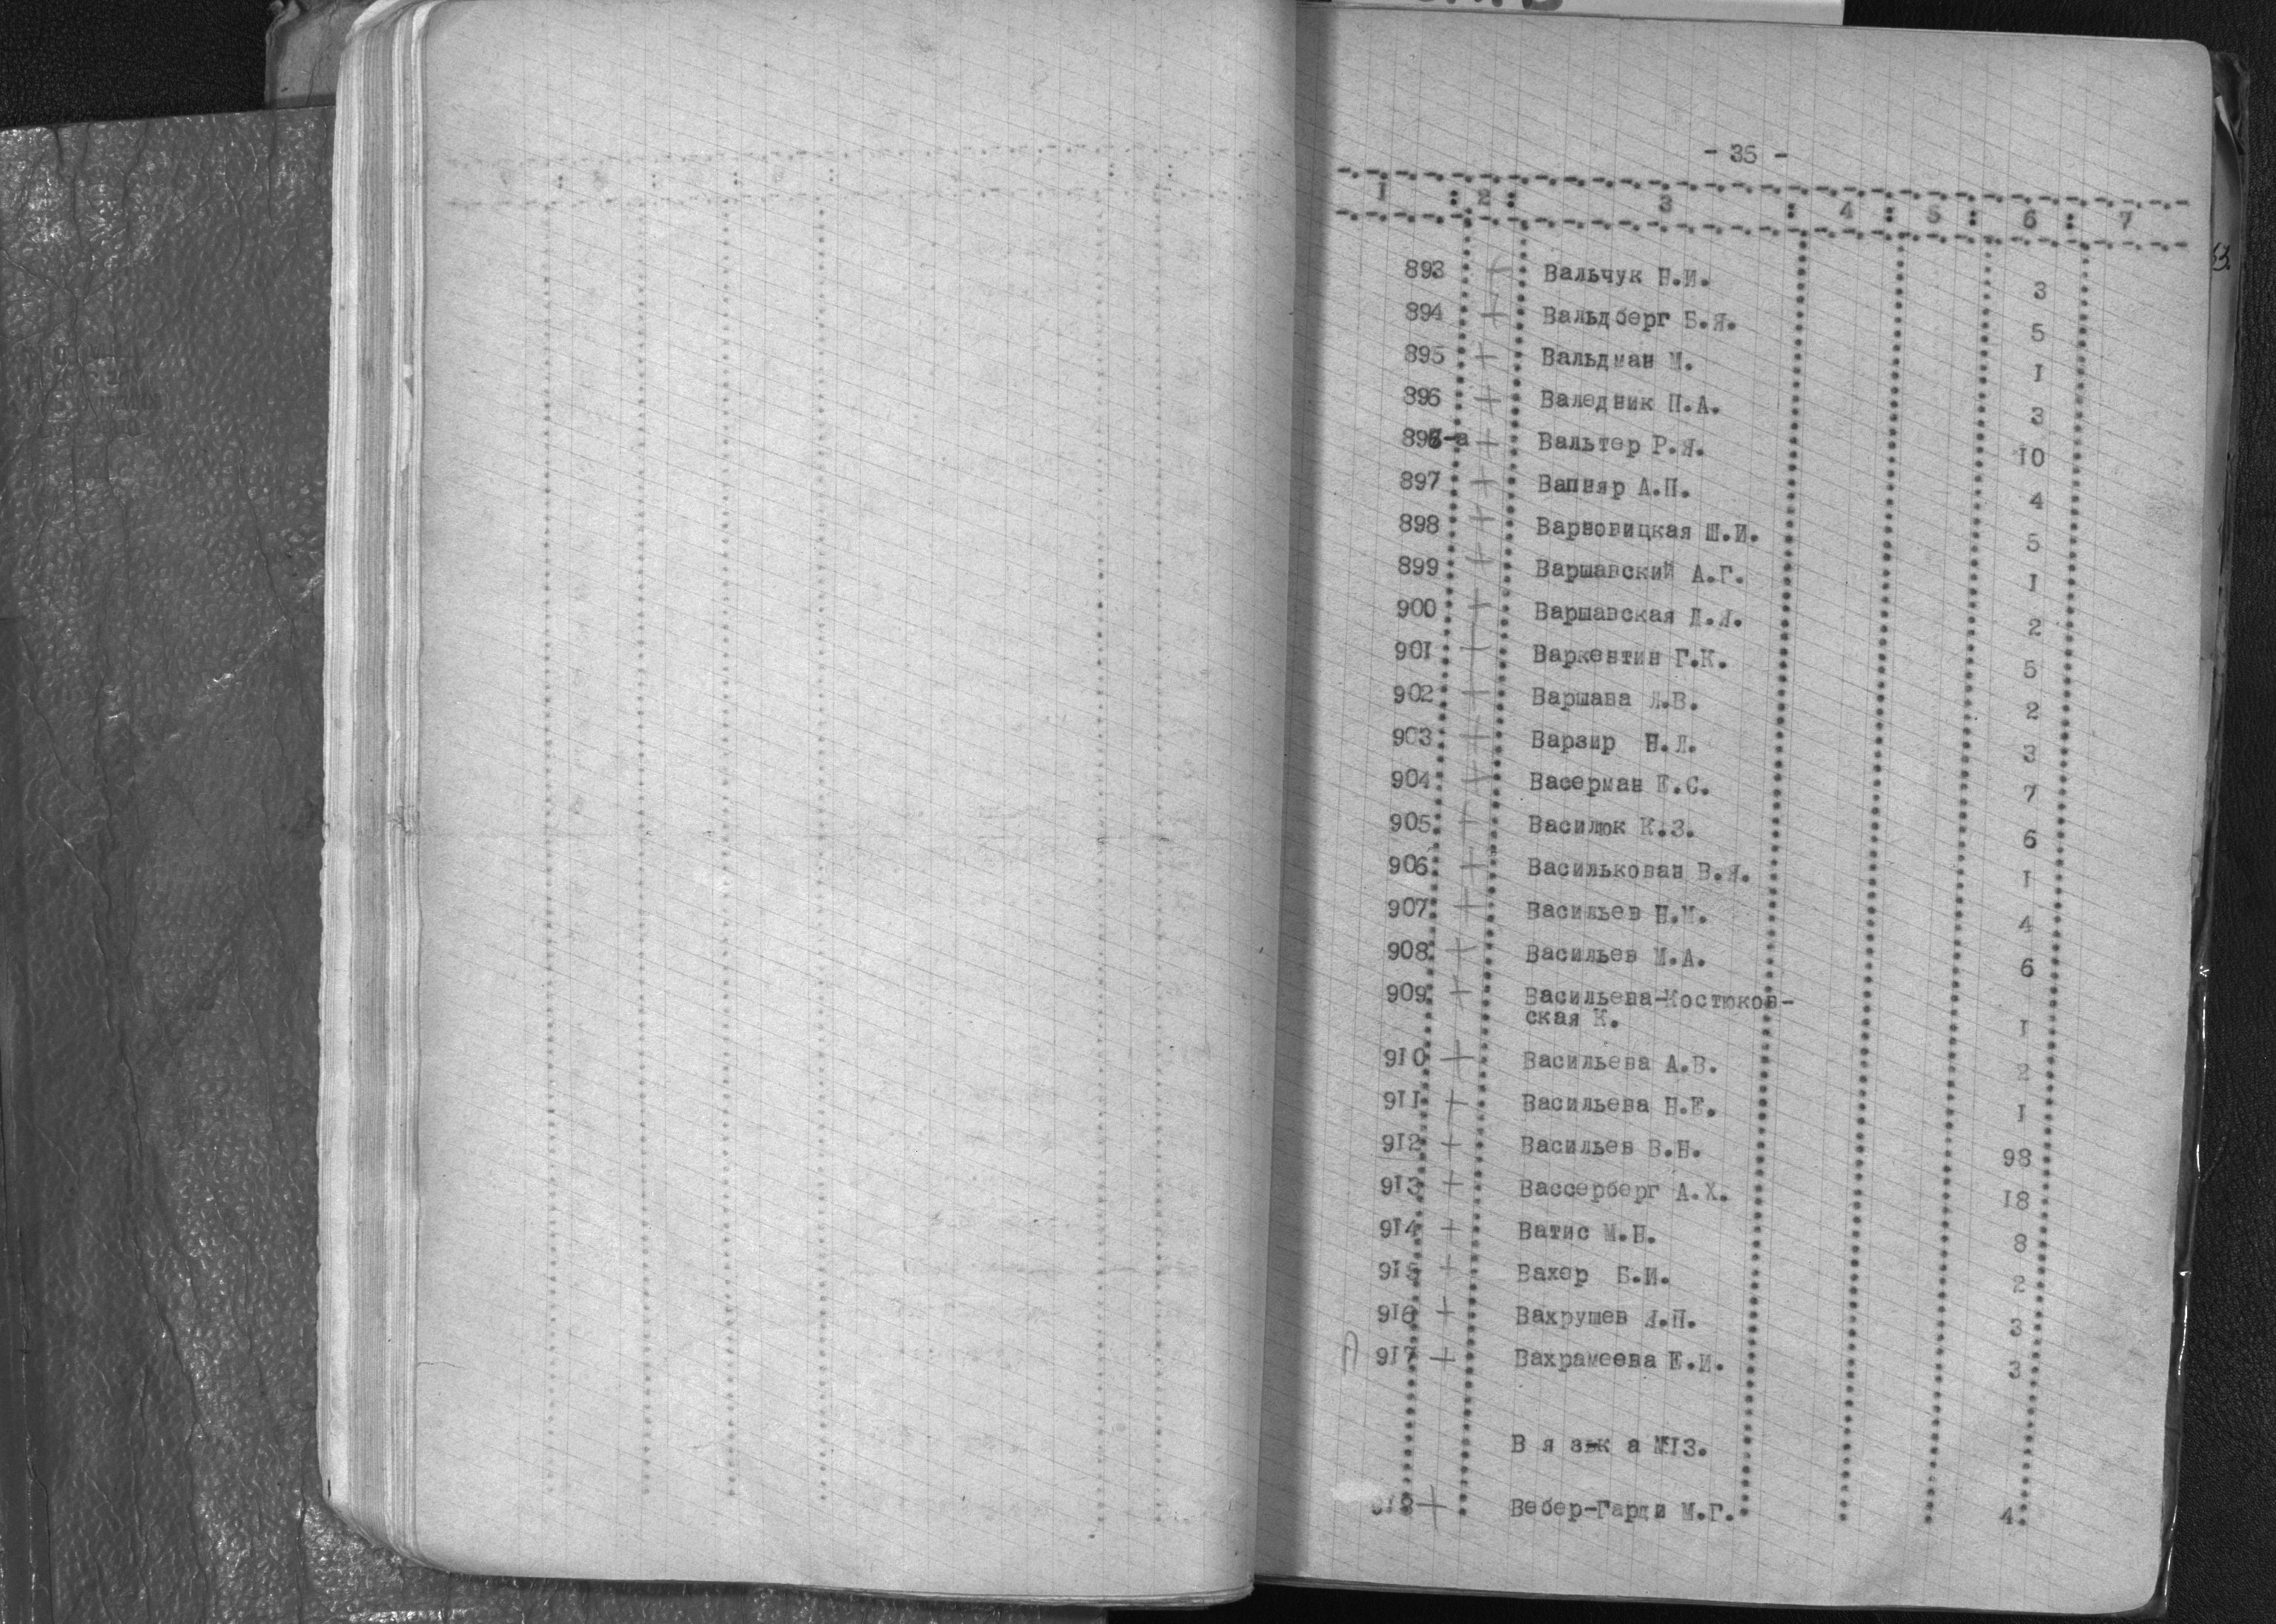 - 35 -
1 : 2 : 3 : 4 : 5 : 6 : 7
893 + Вальчук Н.И. 3
894 + Вальдберг Б.Я. 5
895 + Вальдман М. I
896 + Валедник П.А. 3
896-а + Вальтер Р.Я. IO
897 + Вапняр А.П. 4
898 + Варновицкая Ш.И. 5
899 + Варшавский А.Г. I
900 + Варшавская Л.Л. 2
90I + Варкентин Г.К. 5
902 + Варшава Л.В. 2
903 + Варзир Н.Л. 3
904 + Васерман Е.С. 7
905 + Василюк К.З. 6
906 + Василькован В.Я. I
907 + Васильев Н.М. 4
908 + Васильев М.А. 6
909 + Васильева-Костюков-
ская К. I
9IO + Васильева А.В. 2
9II + Васильева Н.Е. I
9I2 + Васильев В.Н. 98
9I3 + Вассерберг А.Х. I8
9I4 + Ватис М.Н. 8
9I5 + Вахер Б.И. 2
9I6 + Вахрушев А.П. 3
9I7 + Вахрамеева Е.И. 3
В я з к а №I3.
9I8 + Вебер-Гарди М.Г. 4.